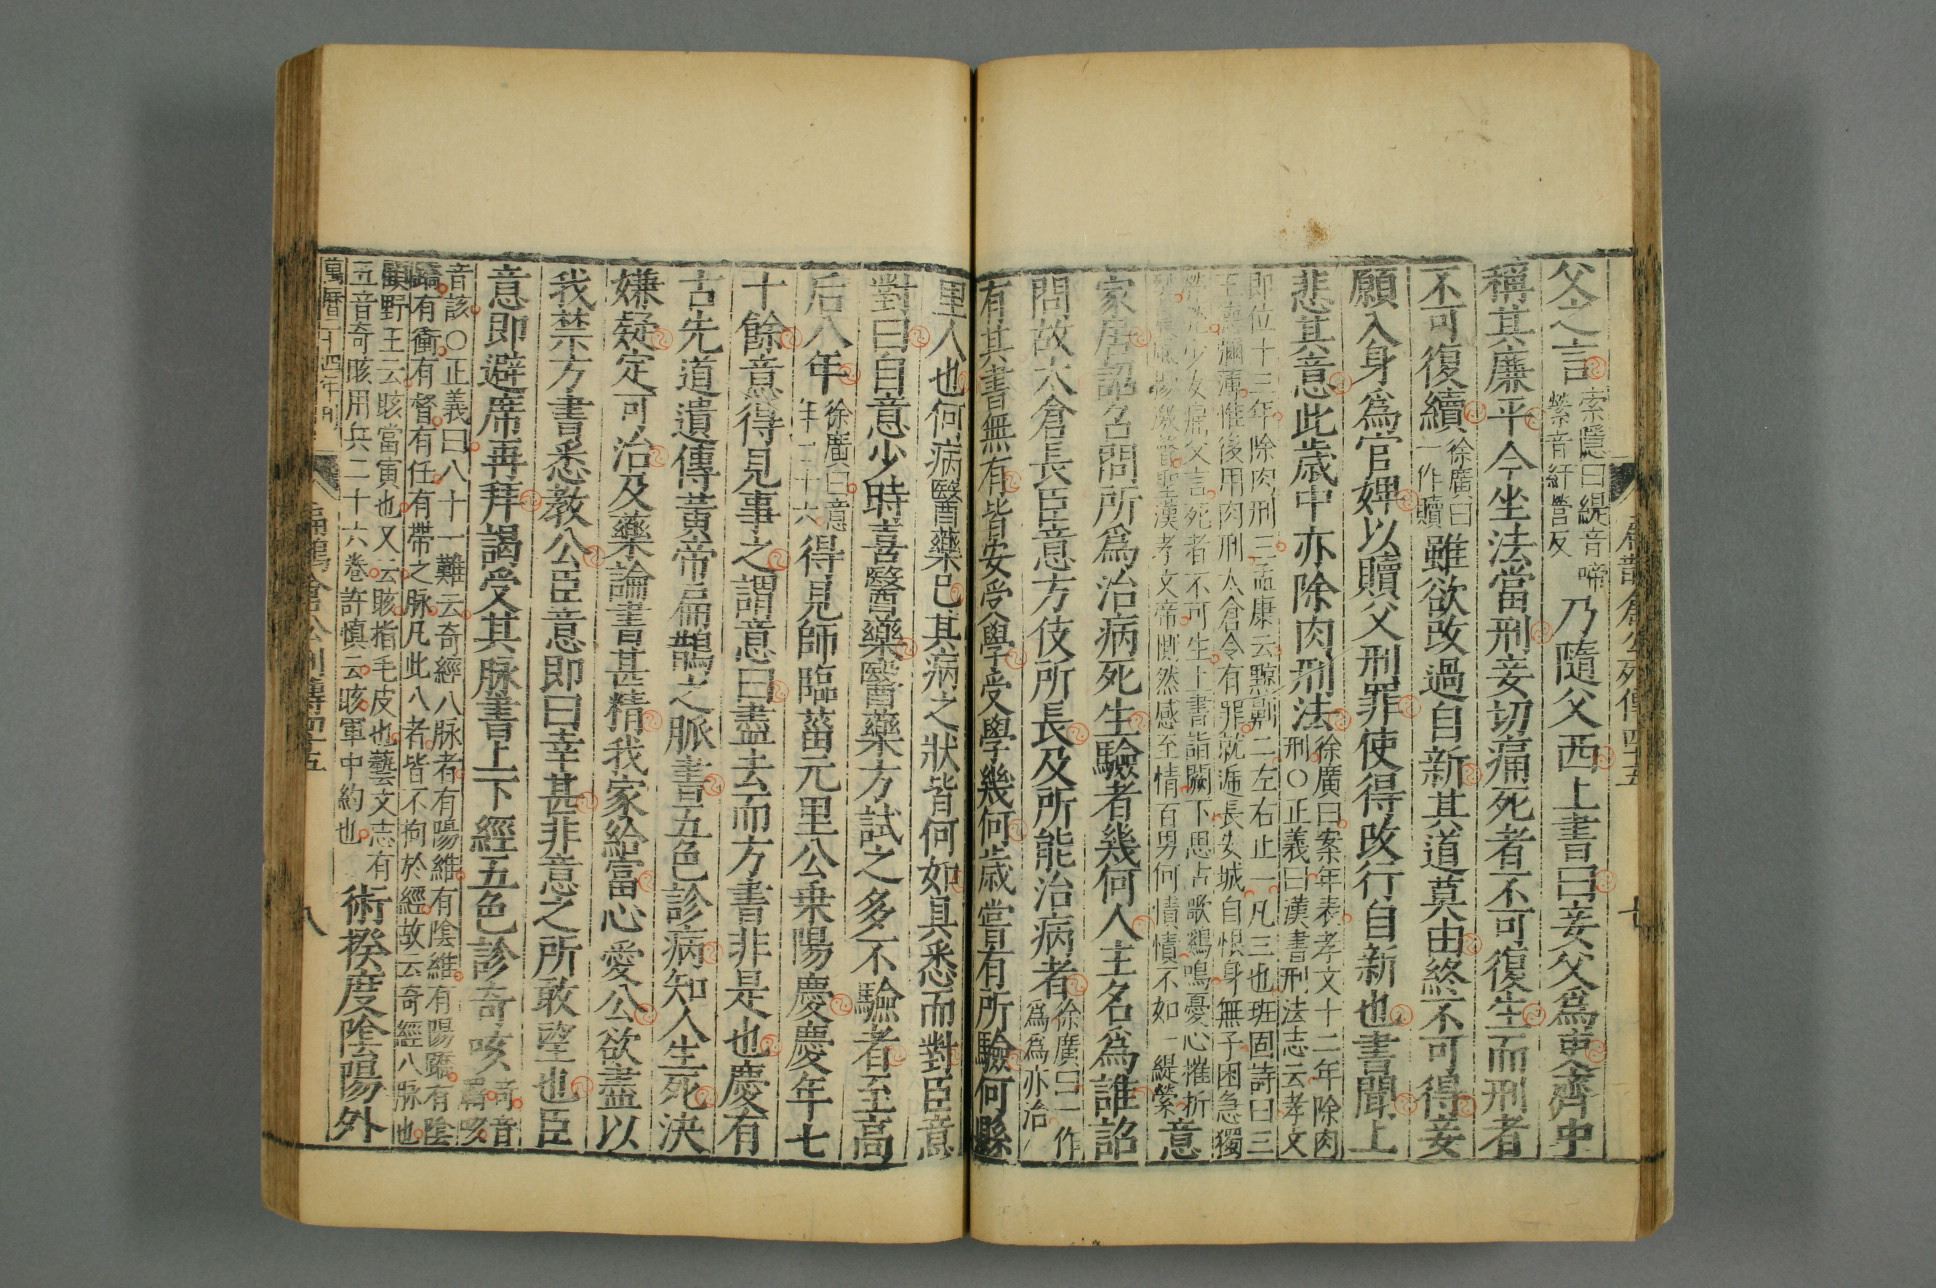 扁鵲倉公列傳四十五 七
父之言索隱曰緹音啼縈音紆營反乃隨父西上書曰妾父爲吏齊中
稱其廉平今坐法當刑妾切痛死者不可復生而刑者
不可復續徐廣曰一作贖雖欲改過自新其道莫由終不可得妾
願入身爲官婢以贖父刑罪使得改行自新也書聞上
悲其意此歲中亦除肉刑法徐廣曰案年表孝文十二年除肉刑○正義曰漢書刑法志云孝文
即位十三年除肉刑三孟康云黥劓二左右止一凡三也班固詩曰三
王德彌薄惟後用肉刑太倉令有罪就逓長安城自恨身無子困急獨
焭焭小女痛父言死者不可生上書詣闕下思古歌雞鳴憂心摧折
裂晨風揚激聲聖漢孝文帝惻然感至情百男何憒憒不如一緹縈意
家居詔召問所爲治病死生驗者幾何人主名爲誰詔
問故太倉長臣意方伎所長及所能治病者徐廣曰一作爲爲亦治
有其書無有皆安受學受學幾何歲嘗有所驗何縣
里人也何病醫藥已其病之狀皆何如具悉而對臣意
對曰自意少時喜醫藥醫藥方試之多不驗者至高
后八年徐廣曰意年三十六得見師臨菑元里公乗陽慶慶年七
十餘意得見事之謂意曰盡去而方書非是也慶有
古先道遺傳黃帝扁鵲之脈書五色診病知人生死決
嫌疑定可治及藥論書甚精我家給富心愛公欲盡以
我禁方書悉教公臣意即曰幸甚非意之所敢望也臣
意即避席再拜謁受其脉書上下經五色診奇咳奇音羈咳
音該○正義曰八十一難云奇經八脉者有陽維有陰維有陽蹻有陰
蹻有衝有督有任有帶之脉凡此八者皆不拘於經故云奇經八脉也
顧野王云胲當實也又云胲指毛皮也藝文志有
五音奇胲用兵二十六卷許慎云胲軍中約也術揆度陰陽外
萬曆二十四年刊 扁鵲倉公列傳四十五 八